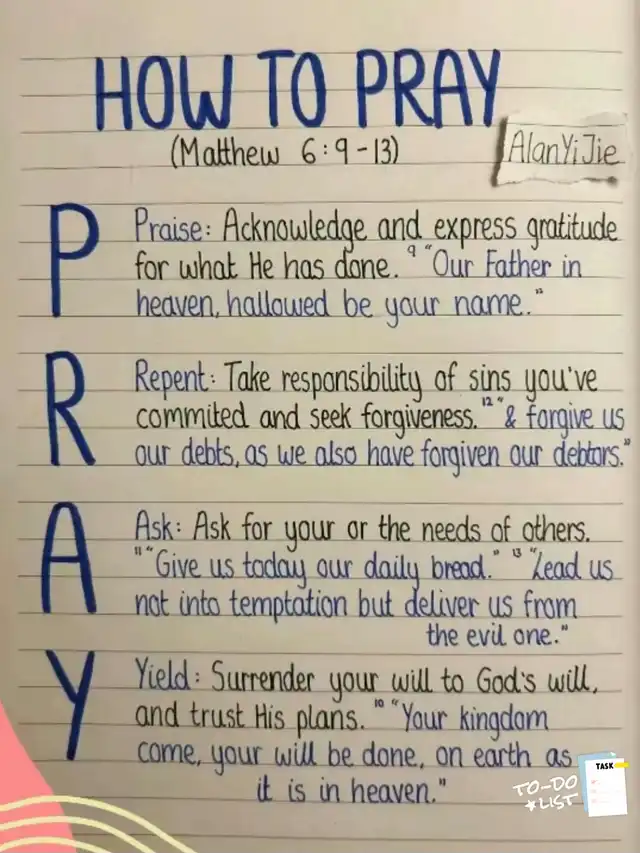 HOW TO PRAY
(Matthew 6:9-13)
AlanYiJie
P
Praise: Acknowledge and express gratitude
for what He has done. ⁹ "Our Father in
heaven, hallowed be your name."
R
Repent: Take responsibility of sins you've
commited and seek forgiveness. ¹² "& forgive us
our debts, as we also have forgiven our debtors."
A
Ask: Ask for your or the needs of others.
¹¹ "Give us today our daily bread." ¹³ "Lead us
not into temptation but deliver us from
the evil one."
Y
Yield: Surrender your will to God's will,
and trust His plans. ¹⁰ "Your kingdom
come, your will be done, on earth as
it is in heaven."
TASK
TO-DO
LIST